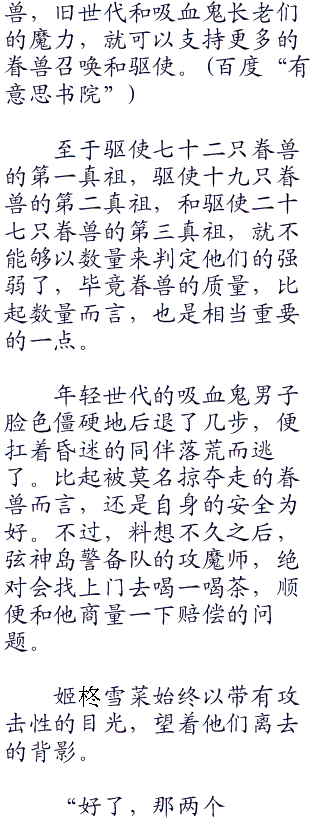 兽，旧世代和吸血鬼长老们
的魔力，就可以支持更多的
眷兽召唤和驱使。(百度“有
意思书院”)
至于驱使七十二只眷兽
的第一真祖，驱使十九只眷
兽的第二真祖，和驱使二十
七只眷兽的第三真祖，就不
能够以数量来判定他们的强
弱了，毕竟眷兽的质量，比
起数量而言，也是相当重要
的一点。
年轻世代的吸血鬼男子
脸色僵硬地后退了几步，便
扛着昏迷的同伴落荒而逃
了。比起被莫名掠夺走的眷
兽而言，还是自身的安全为
好。不过，料想不久之后，
弦神岛警备队的攻魔师，绝
对会找上门去喝一喝茶，顺
便和他商量一下赔偿的问
题。
姬柊雪菜始终以带有攻
击性的目光，望着他们离去
的背影。
“好了，那两个